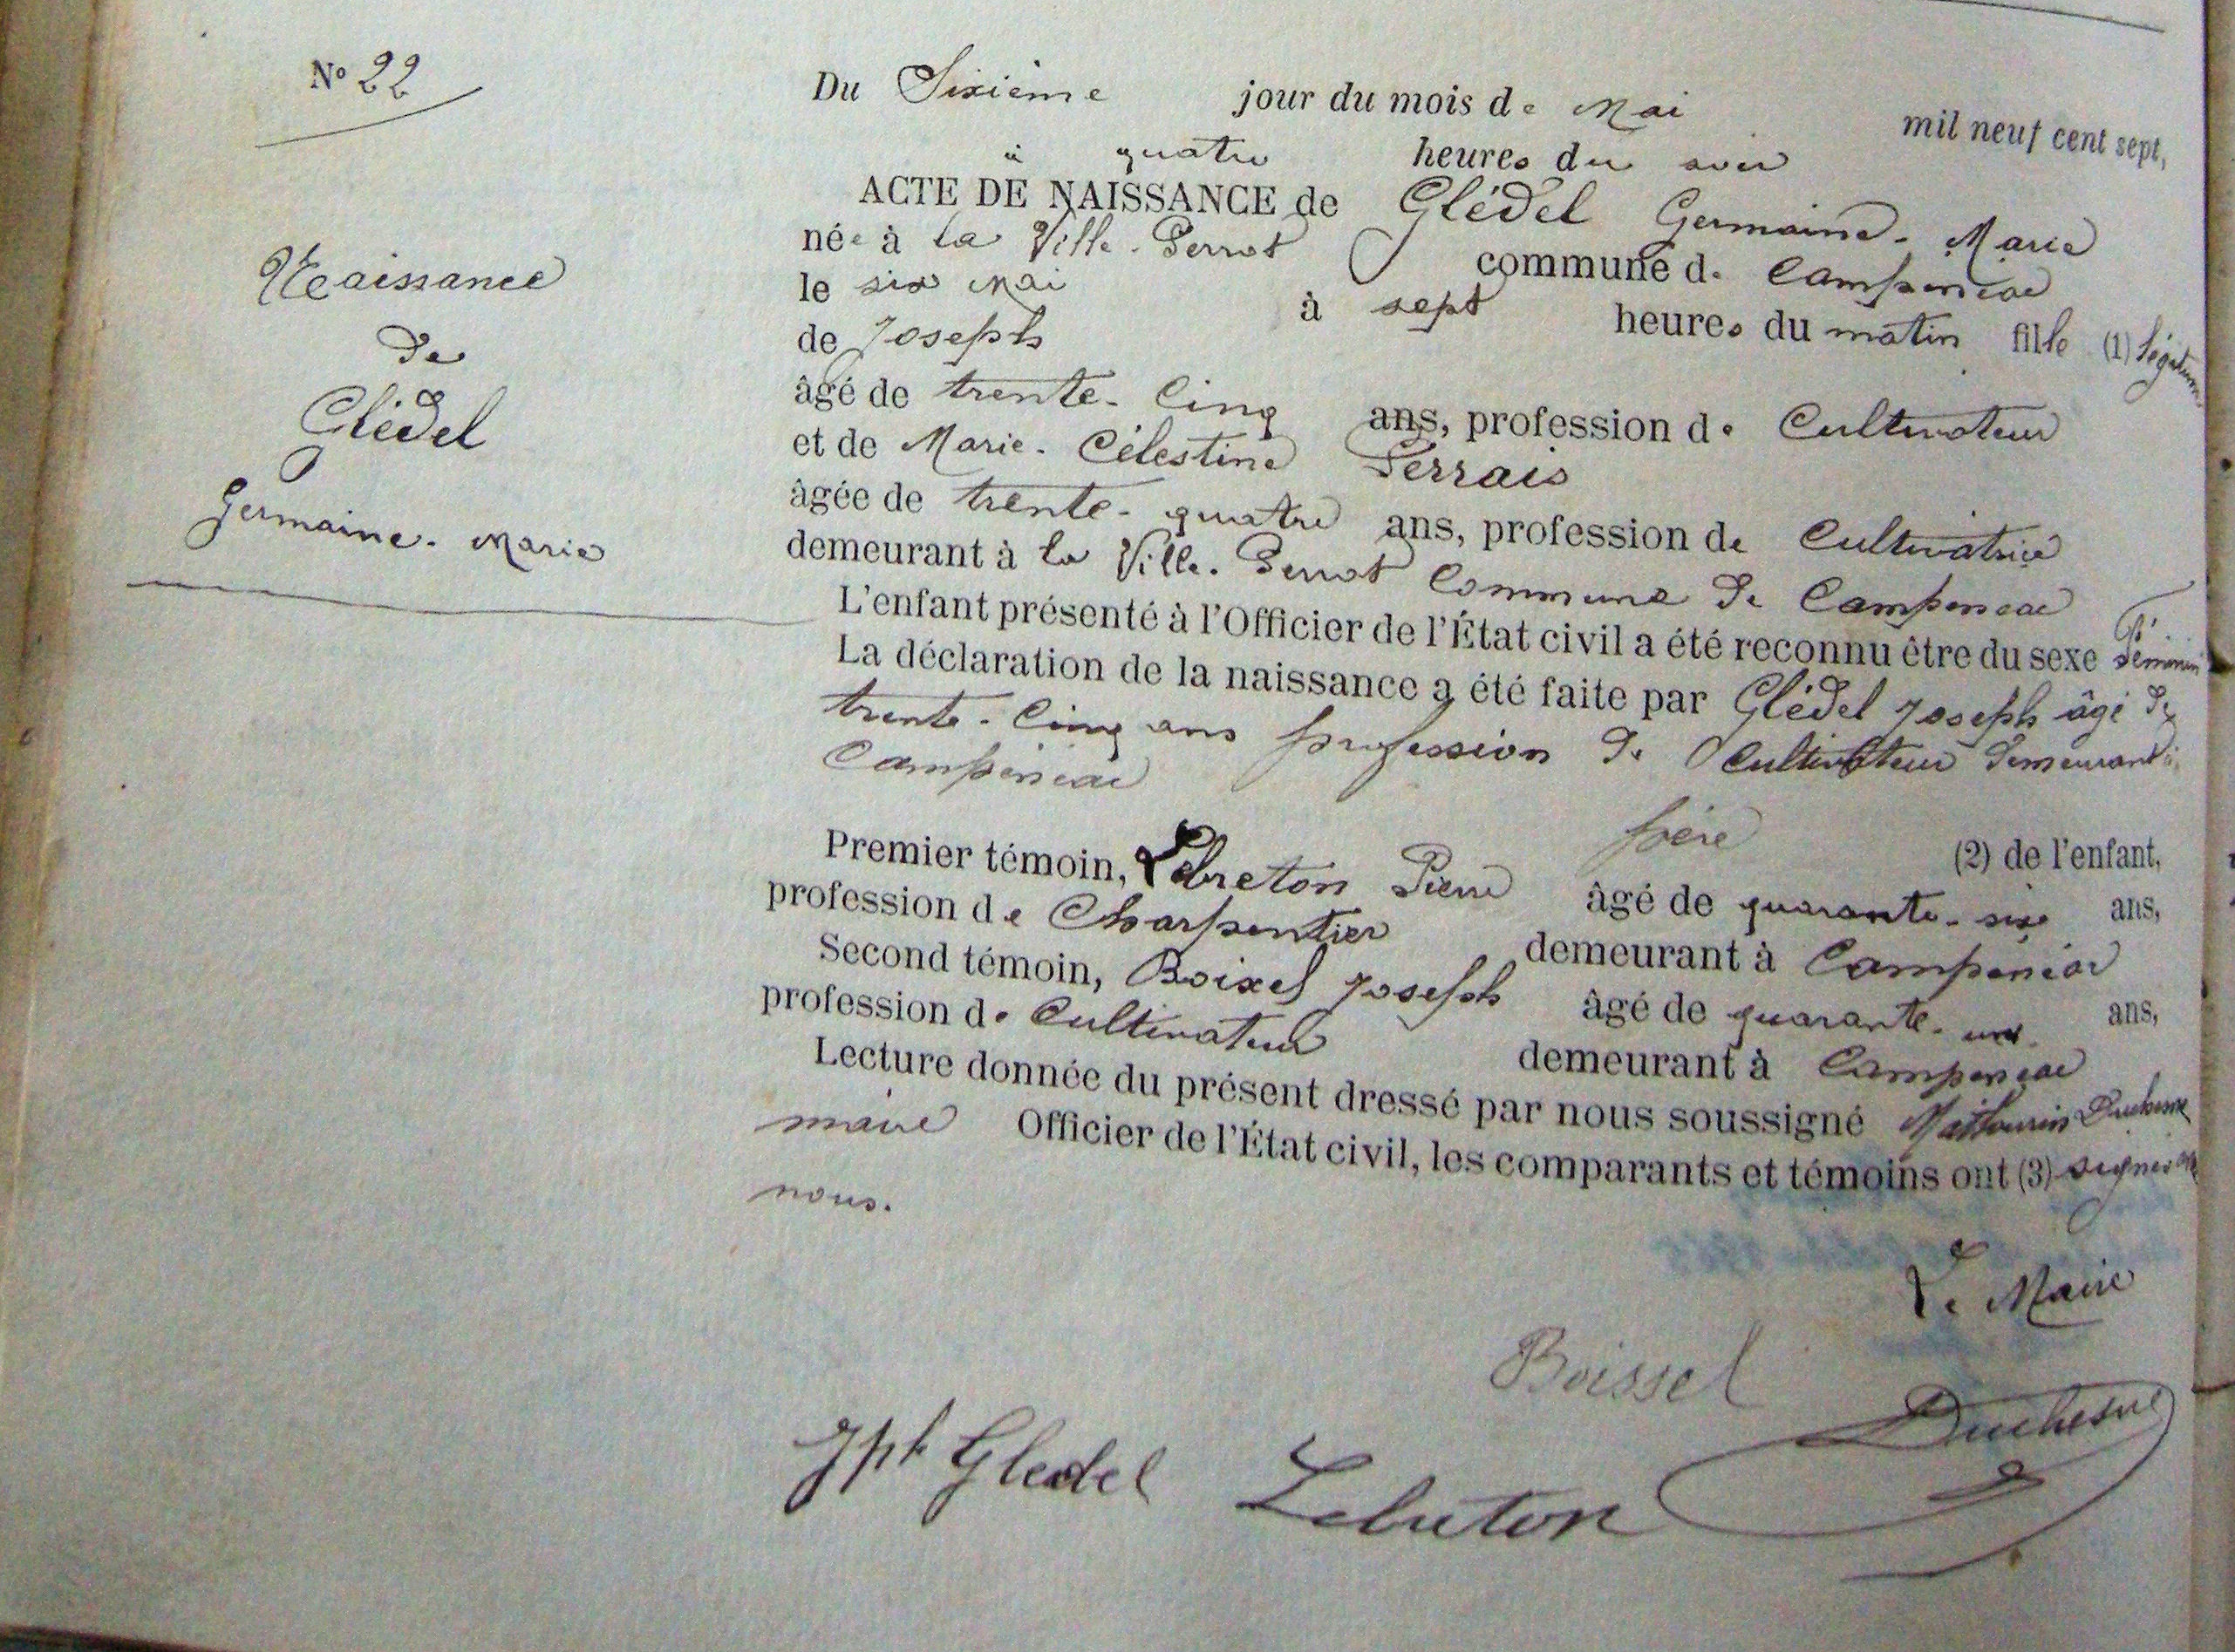 N° 22
Naissance
de
Glédel
Germaine-Marie
Du Sixième jour du mois de Mai mil neuf cent sept,
à quatre heures du soir
ACTE DE NAISSANCE de Glédel Germaine-Marie
née à la Ville-Perrot commune de Campénéac
le six Mai à sept heures du matin fille (1) légitime
de Joseph
âgé de trente-Cinq ans, profession de Cultivateur
et de Marie-Célestine Perrais
âgée de trente-quatre ans, profession de Cultivatrice
demeurant à la Ville-Perrot Commune de Campénéac
L'enfant présenté à l'Officier de l'État civil a été reconnu être du sexe féminin
La déclaration de la naissance a été faite par Glédel Joseph âgé de
trente-Cinq ans profession de Cultivateur demeurant à
Campénéac
père (2) de l'enfant,
Premier témoin, Lebreton Pierre âgé de quarante-six ans,
profession de Charpentier demeurant à Campénéac
Second témoin, Boixel Joseph âgé de quarante-un ans,
profession de Cultivateur demeurant à Campénéac
Lecture donnée du présent dressé par nous soussigné Mathurin Duchesne
maire Officier de l'État civil, les comparants et témoins ont (3) signé avec
nous.
Le Maire
Boissel
Duchesne
Jph Gledel Lebreton